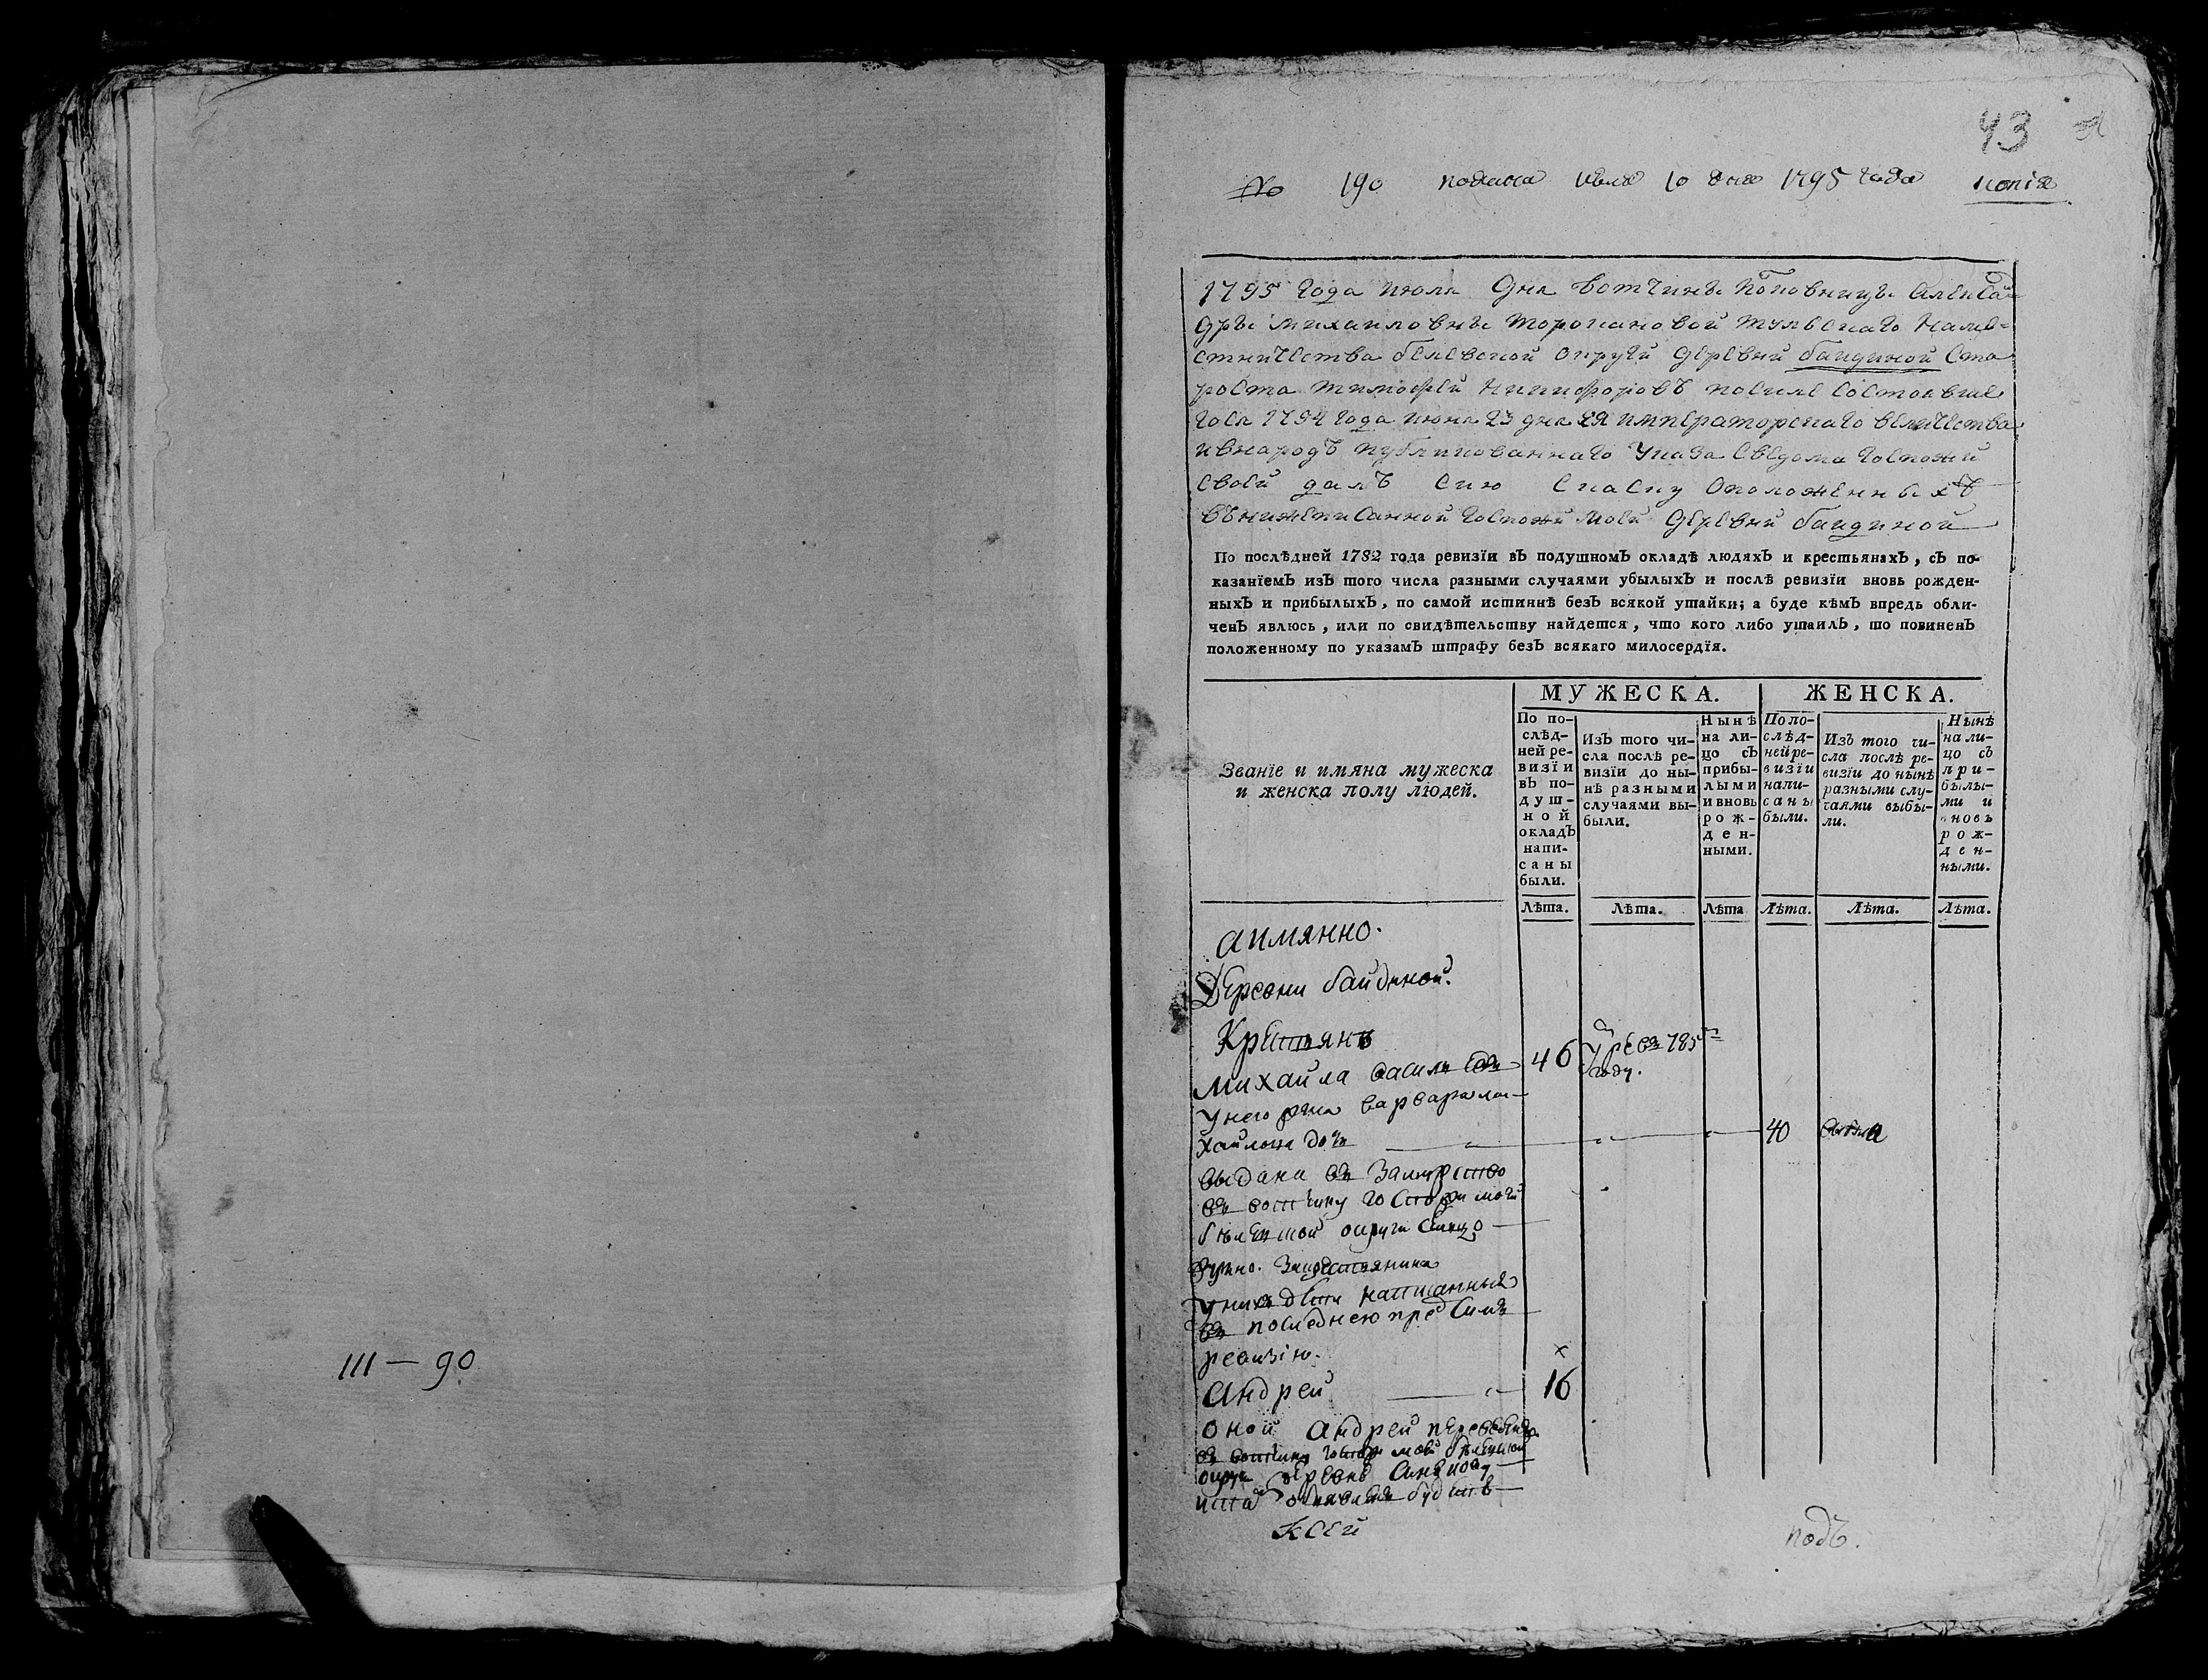 III — 90
43
№ 190 подана июля 10 дня 1795 года копiя
1795 года июля дня вотчинъ
дръ Михаиловнъ Тульскаго Намѣ-
стничества белевской округи деревни баидиной Ста
роста Тимофеи Никифоровъ посиле состоявше
гося 1794 года июня 23 дня ея императорскаго величества
ивнародъ публикованнаго указа сведома госпожи
своей далъ сию скаску оположенныхъ
въ нижеписанной госпожи моей деревни баидиной
По послѣдней 1782 года ревизїи вЪ подушномЪ окладѣ людяхЪ и крестьянахЪ, сЪ по-
казанїемЪ изЪ того числа разными случаями убылыхЪ и послѣ ревизїи вновь рожден-
ныхЪ и прибылыхЪ, по самой истиннѣ безЪ всякой утайки; а буде кѣмЪ впредь обли-
ченЪ явлюсь, или по свидѣтельству найдется, что кого либо утаилЪ, то повиненЪ
положенному по указамЪ штрафу безЪ всякаго милосердїя.
Званїе и имяна мужеска
и женска полу людей.
МУЖЕСКА.
По по-
слѣд-
ней ре-
визїи
вЪ по-
душ-
ной
окладЪ
напи-
саны
были.
ИзЪ того чи-
сла послѣ ре-
визїи до ны-
нѣ разными
случаями вы-
были.
Нынѣ
на ли-
цо сЪ
прибы-
лыми
и вновь
рож-
ден-
ными.
ЖЕНСКА.
По по-
слѣд-
ней ре-
визїи
напи-
саны
были.
ИзЪ того чи-
сла послѣ ре-
визїи до нынѣ
разными слу-
чаями выбы-
ли.
Нынѣ
на ли-
цо сЪ
при-
былы-
ми и
вновь
рож-
ден-
ными.
Лѣта. Лѣта. Лѣта Лѣта. Лѣта. Лѣта.
аимянно.
Деревни баидиной.
Крестьянъ
Михаила васильевъ 46 785
году.
Унего жена варвара
дочь 40
выдана въ замужство
въ вотчину госпожи моей
округи
Унихъ дети написанныя
въ последнею пред симъ
ревизiю.
Андреи 16
оной Андреи переведенъ
въ вотчину госпожи моей
округи
ксей
подъ.